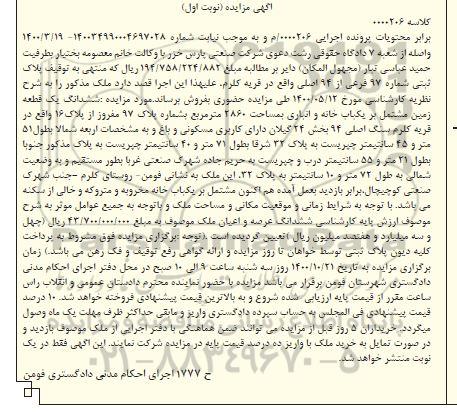 آگهی مزایده (نوبت اول)
کلاسه ۰۰۰۰۲۰۶
برابر محتویات پرونده اجرایی ۰۰۰۰۲۰۶/م و به موجب نیابت شماره ۱۴۰۰۳۴۹۹۰۰۰۴۶۹۷۰۲۸- ۱۴۰۰/۳/۱۹
واصله از شعبه ۷ دادگاه حقوقی رشت دعوی شرکت صنعتی پارس خزر با وکالت خانم معصومه بختیار بطرفیت
حمید عباسی تبار (مجهول المکان) دایر بر مطالبه مبلغ ۱۹۴/۷۵۸/۲۲۴/۸۸۲ ریال که منتهی به توقیف پلاک
ثبتی شماره ۹۷ فرعی از ۹۴ اصلی واقع در قریه کلرم. علیهذا این اجرا قصد دارد ملک مذکور را به شرح
نظریه کارشناسی مورخ ۱۴۰۰/۰۵/۱۲ طی مزایده حضوری بفروش برساند.مورد مزایده :ششدانگ یک قطعه
زمین مشتمل بر یکباب خانه و انباری بمساحت ۲۸۶۰ مترمربع بشماره پلاک ۹۷ مفروز از پلاک۱۶ واقع در
قریه کلرم سنگ اصلی ۹۴ بخش ۲۴ گیلان دارای کاربری مسکونی و باغ و به مشخصات اربعه شمالا بطول۵۱
متر و ۴۵ سانتیمتر چپریست به پلاک ۳۲ شرقا بطول ۷۱ متر و ۴۰ سانتیمتر چپریست به پلاک مذکور جنوبا
بطول ۳۱ متر و ۵۵ سانتیمتر درب و چپریست به حریم جاده شهرک صنعتی غربا بطور مستقیم و به وضعیت
شمالی به طول ۷۲ متر و ۱۰ سانتیمتر به پلاک ۳۲. این ملک به نشانی فومن- روستای کلرم –جنب شهرک
صنعتی کوچیچال.برابر بازدید بعمل آمده هم اکنون مشتمل بر یکباب خانه مخروبه و متروکه و خالی از سکنه
می باشد. با توجه به شرایط زمانی و موقعیت مکانی و مساحت ملک و باتوجه به جمیع عوامل موثر به شرح
موصوف ارزش پایه کارشناسی ششدانگ عرصه و اعیان ملک موصوف به مبلغ ۴۳/۷۰۰/۰۰۰/۰۰۰ ریال (چهل
و سه میلیارد و هفتصد میلیون ریال ) تعیین گردیده است .(توجه :برگزاری مزایده فوق مشروط به پرداخت
کلیه دیون پلاک ثبتی توسط خواهان تا روز مزایده و ارائه گواهی رفع توقیف و فک رهن می باشد.) زمان
برگزاری مزایده به تاریخ ۱۴۰۰/۱۰/۲۱ روز سه شنبه ساعت ۹ الی ۱۰ صبح در محل دفتر اجرای احکام مدنی
دادگستری شهرستان فومن برقرار می باشد مزایده با حضور نماینده محترم دادستان عمومی و انقلاب راس
ساعت مقرر از قیمت پایه ارزیابی شده شروع و به بالاترین قیمت پیشنهادی فروخته خواهد شد. ۱۰ درصد
قیمت پیشنهادی فی المجلس به حساب سپرده دادگستری واریز و مابقی حداکثر ظرف مهلت یک ماه وصول
میگردد.خریداران ۵ روز قبل از مزایده می توانند ضمن هماهنگی با دفتر اجرایی از ملک موصوف بازدید و
در صورت تمایل به خرید ملک با واریز ده درصد قیمت پایه در مزایده شرکت نمایند. این آگهی فقط در یک
نوبت منتشر خواهد شد.
ح ۱۷۷۷ اجرای احکام مدنی دادگستری فومن
۰۲۱-۸۸۳۴۹۶۷۰-۵